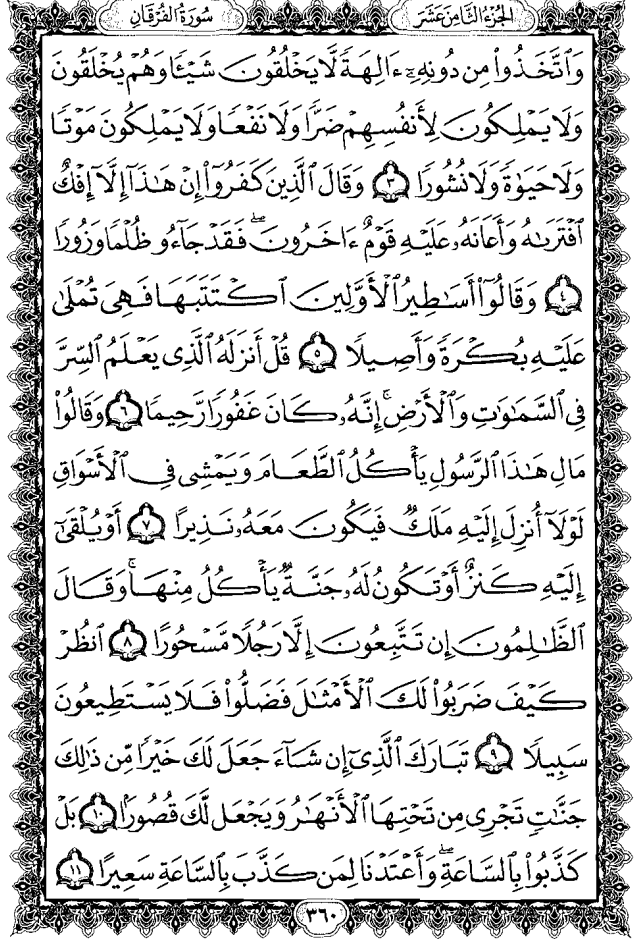 الجزء الثامن عشر سورة الفرقان
وَاتَّخَذُوا۟ مِن دُونِهِۦٓ ءَالِهَةً لَّا يَخْلُقُونَ شَيْـًٔا وَهُمْ يُخْلَقُونَ
وَلَا يَمْلِكُونَ لِأَنفُسِهِمْ ضَرًّا وَلَا نَفْعًا وَلَا يَمْلِكُونَ مَوْتًا
وَلَا حَيَوٰةً وَلَا نُشُورًا ٣ وَقَالَ ٱلَّذِينَ كَفَرُوٓا۟ إِنْ هَـٰذَآ إِلَّآ إِفْكٌ
ٱفْتَرَىٰهُ وَأَعَانَهُۥ عَلَيْهِ قَوْمٌ ءَاخَرُونَ ۖ فَقَدْ جَآءُو ظُلْمًا وَزُورًا
٤ وَقَالُوٓا۟ أَسَـٰطِيرُ ٱلْأَوَّلِينَ ٱكْتَتَبَهَا فَهِىَ تُمْلَىٰ
عَلَيْهِ بُكْرَةً وَأَصِيلًا ٥ قُلْ أَنزَلَهُ ٱلَّذِى يَعْلَمُ ٱلسِّرَّ
فِى ٱلسَّمَـٰوَٰتِ وَٱلْأَرْضِ ۚ إِنَّهُۥ كَانَ غَفُورًا رَّحِيمًا ٦ وَقَالُوا۟
مَالِ هَـٰذَا ٱلرَّسُولِ يَأْكُلُ ٱلطَّعَامَ وَيَمْشِى فِى ٱلْأَسْوَاقِ
لَوْلَآ أُنزِلَ إِلَيْهِ مَلَكٌ فَيَكُونَ مَعَهُۥ نَذِيرًا ٧ أَوْ يُلْقَىٰٓ
إِلَيْهِ كَنزٌ أَوْ تَكُونُ لَهُۥ جَنَّةٌ يَأْكُلُ مِنْهَا ۚ وَقَالَ
ٱلظَّـٰلِمُونَ إِن تَتَّبِعُونَ إِلَّا رَجُلًا مَّسْحُورًا ٨ ٱنظُرْ
كَيْفَ ضَرَبُوا۟ لَكَ ٱلْأَمْثَـٰلَ فَضَلُّوا۟ فَلَا يَسْتَطِيعُونَ
سَبِيلًا ٩ تَبَارَكَ ٱلَّذِىٓ إِن شَآءَ جَعَلَ لَكَ خَيْرًا مِّن ذَٰلِكَ
جَنَّـٰتٍ تَجْرِى مِن تَحْتِهَا ٱلْأَنْهَـٰرُ وَيَجْعَل لَّكَ قُصُورًۢا ١٠ بَلْ
كَذَّبُوا۟ بِٱلسَّاعَةِ ۖ وَأَعْتَدْنَا لِمَن كَذَّبَ بِٱلسَّاعَةِ سَعِيرًا ١١
٣٦٠